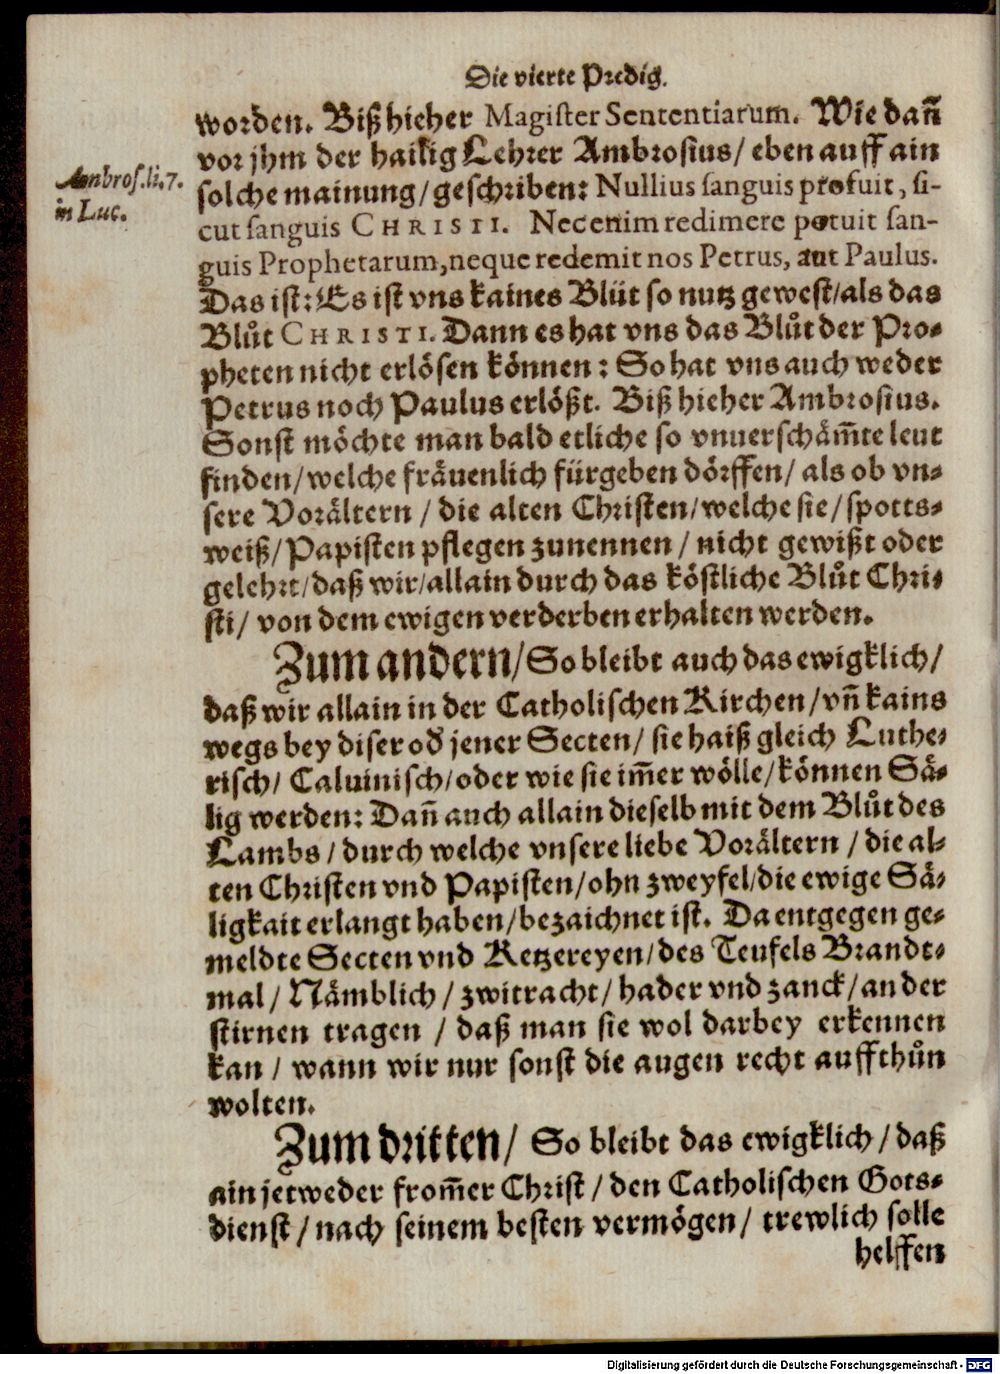 Die vierte Predig.
worden. Biß hieher Magister Sententiarum. Wie dañ
vor jhm der hailig Lehrer Ambrosius/ eben auff ain
solche mainung/geschriben: Nullius sanguis profuit, si-
cut sanguis CHRISTI. Nec enim redimere potuit san-
guis Prophetarum,neque redemit nos Petrus, aut Paulus.
Das ist: Es ist vns kaines Blůt so nutz gewest/als das
Blůt CHRISTI. Dann es hat vns das Blůt der Pro-
pheten nicht erlösen können: So hat vns auch weder
Petrus noch Paulus erlößt. Biß hieher Ambrosius.
Sonst möchte man bald etliche so vnuerschäm̃te leut
finden/welche fräuenlich fürgeben dörffen/ als ob vn-
sere Vorältern / die alten Christen/welche sie/spotts-
weiß/Papisten pflegen zunennen / nicht gewißt oder
gelehrt/daß wir/allain durch das köstliche Blůt Chri-
sti/ von dem ewigen verderben erhalten werden.
Zum andern/So bleibt auch das ewigklich/
daß wir allain in der Catholischen Kirchen/vñ kains
wegs bey diser od̃ jener Secten/ sie haiß gleich Luthe-
risch/ Caluinisch/oder wie sie im̃er wölle/können Sä-
lig werden: Dañ auch allain dieselb mit dem Blůt des
Lambs / durch welche vnsere liebe Vorältern / die al-
ten Christen vnd Papisten/ohn zweyfel/die ewige Sä-
ligkait erlangt haben/bezaichnet ist. Da entgegen ge-
meldte Secten vnd Ketzereyen/des Teufels Brandt-
mal/ Nämblich/ zwitracht/ hader vnd zanck/an der
stirnen tragen / daß man sie wol darbey erkennen
kan / wann wir nur sonst die augen recht auffthůn
wolten.
Zum dritten/ So bleibt das ewigklich/daß
ain jetweder from̃er Christ/ den Catholischen Gots-
dienst/nach seinem besten vermögen/ trewlich solle
helffen
Ambros.li.7.
in Luc.
Digitalisierung gefördert durch die Deutsche Forschungsgemeinschaft - DFG